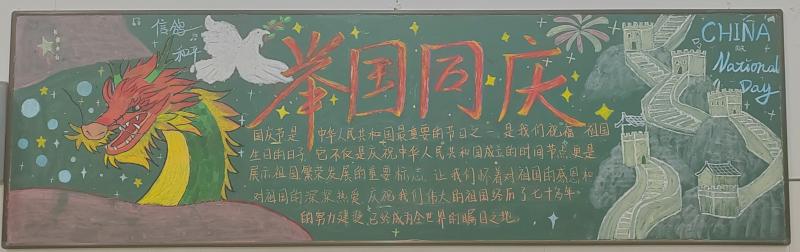 信鸽
和平
举国同庆
CHINA
National
Day
国庆节是 中华人民共和国最重要的节日之一,是我们祝福 祖国
生日的日子,它不仅是庆祝中华人民共和国成立的时间节点,更是
展示祖国繁荣发展的重要标志,让我们怀着对祖国的感恩和
对祖国的深挚热爱,庆祝我们伟大的祖国经历了七十多年
的努力建设,已经成为全世界的瞩目之地。